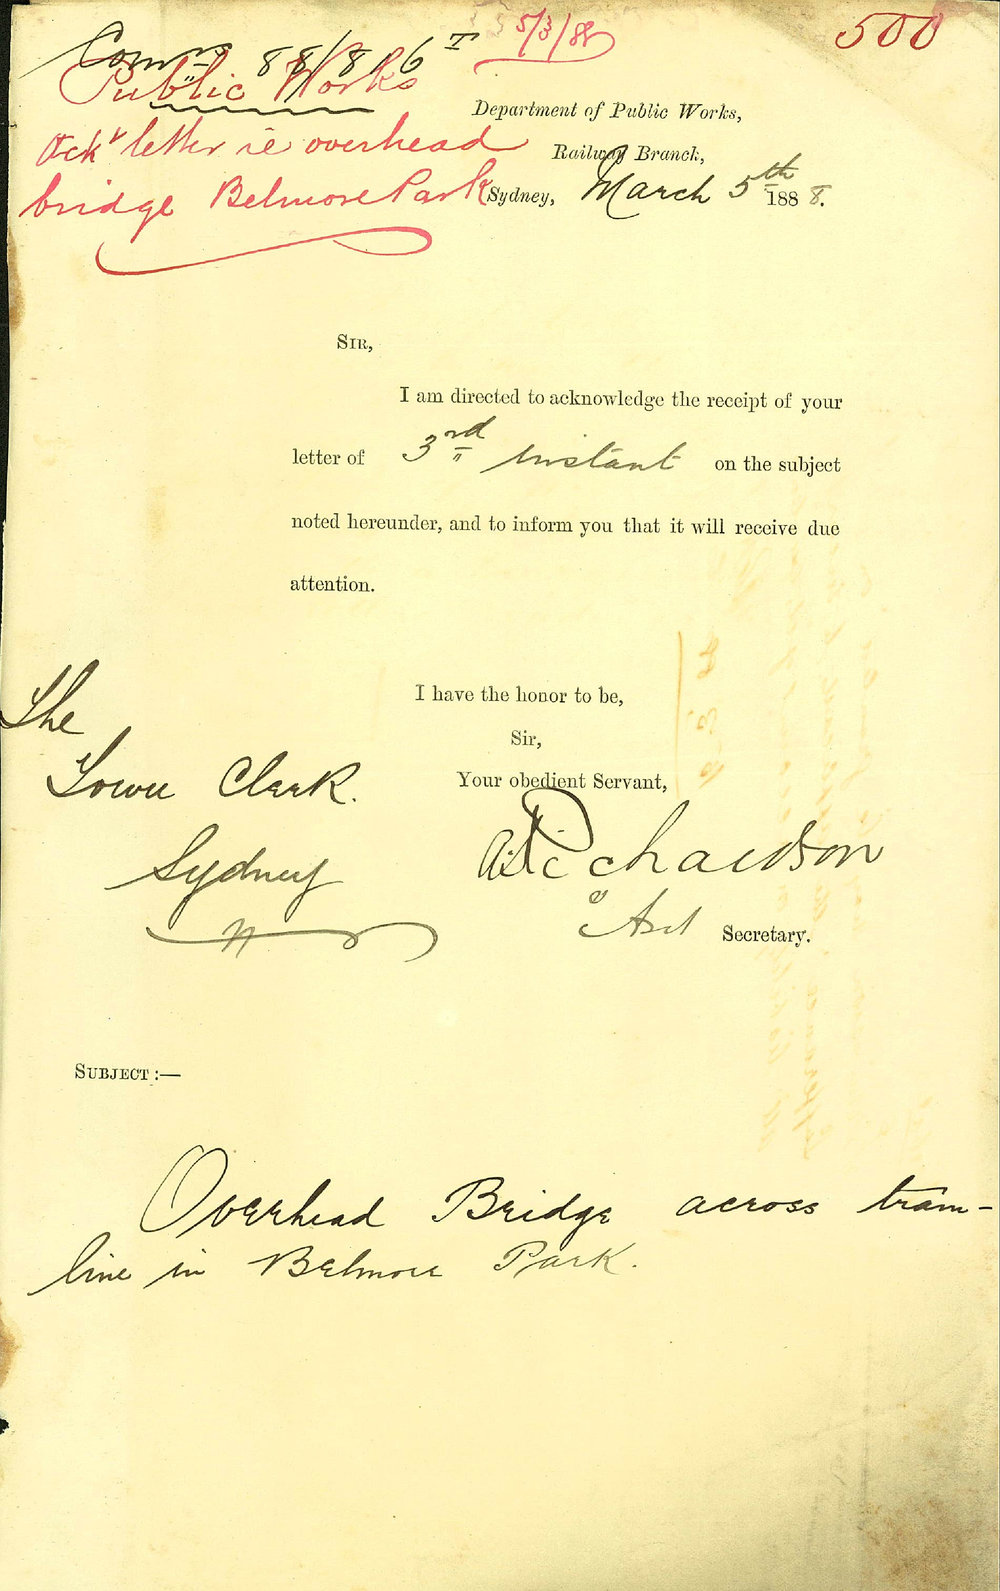 5/3/88
500
88/896 T
Public Works
Department of Public Works,
Ack letter re overhead
Railway Branch,
bridge Belmore Park
Sydney, March 5th 1888.
SIR,
I am directed to acknowledge the receipt of your
letter of 3rd instant on the subject
noted hereunder, and to inform you that it will receive due
attention.
I have the honor to be,
Sir,
Your obedient Servant,
The
Town Clerk.
Sydney
Richardson
Secretary.
SUBJECT :—
Overhead Bridge across tram-
line in Belmore Park.